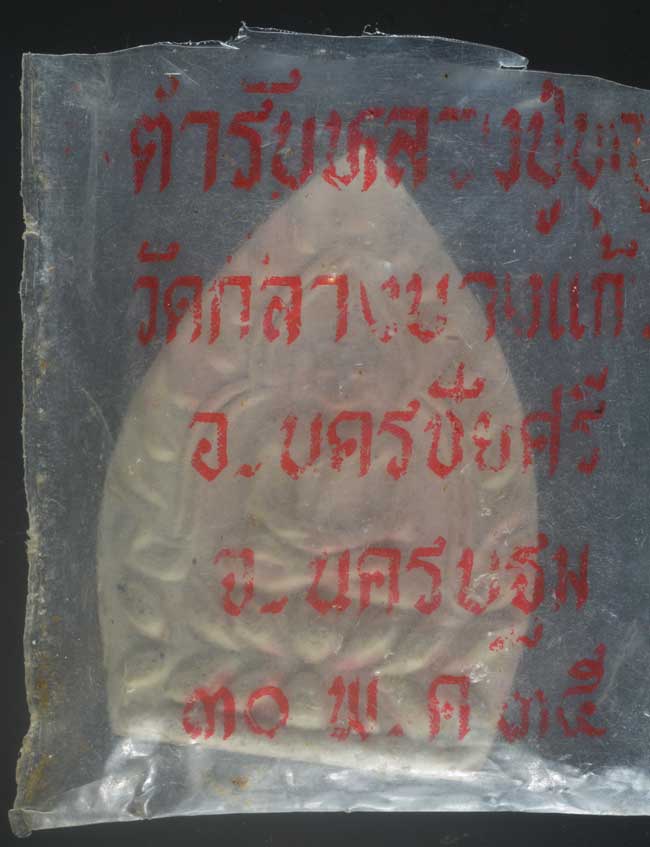 ตำรับหลวงปู่
วัดกลางบางแก้ว
อ.นครชัยศรี
จ.นครปฐม
๓๐ พ.ค ๓๕